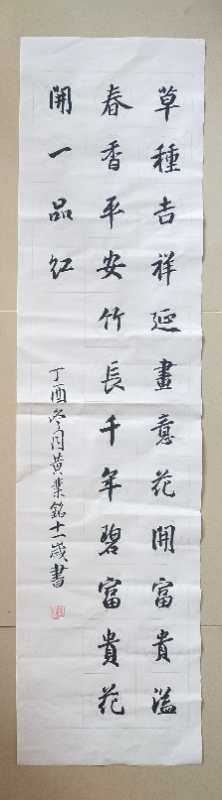 草種吉祥延畫意花開富貴溢
春香平安竹長千年碧富貴花
開一品紅
丁酉冬月黃業銘十一歲書